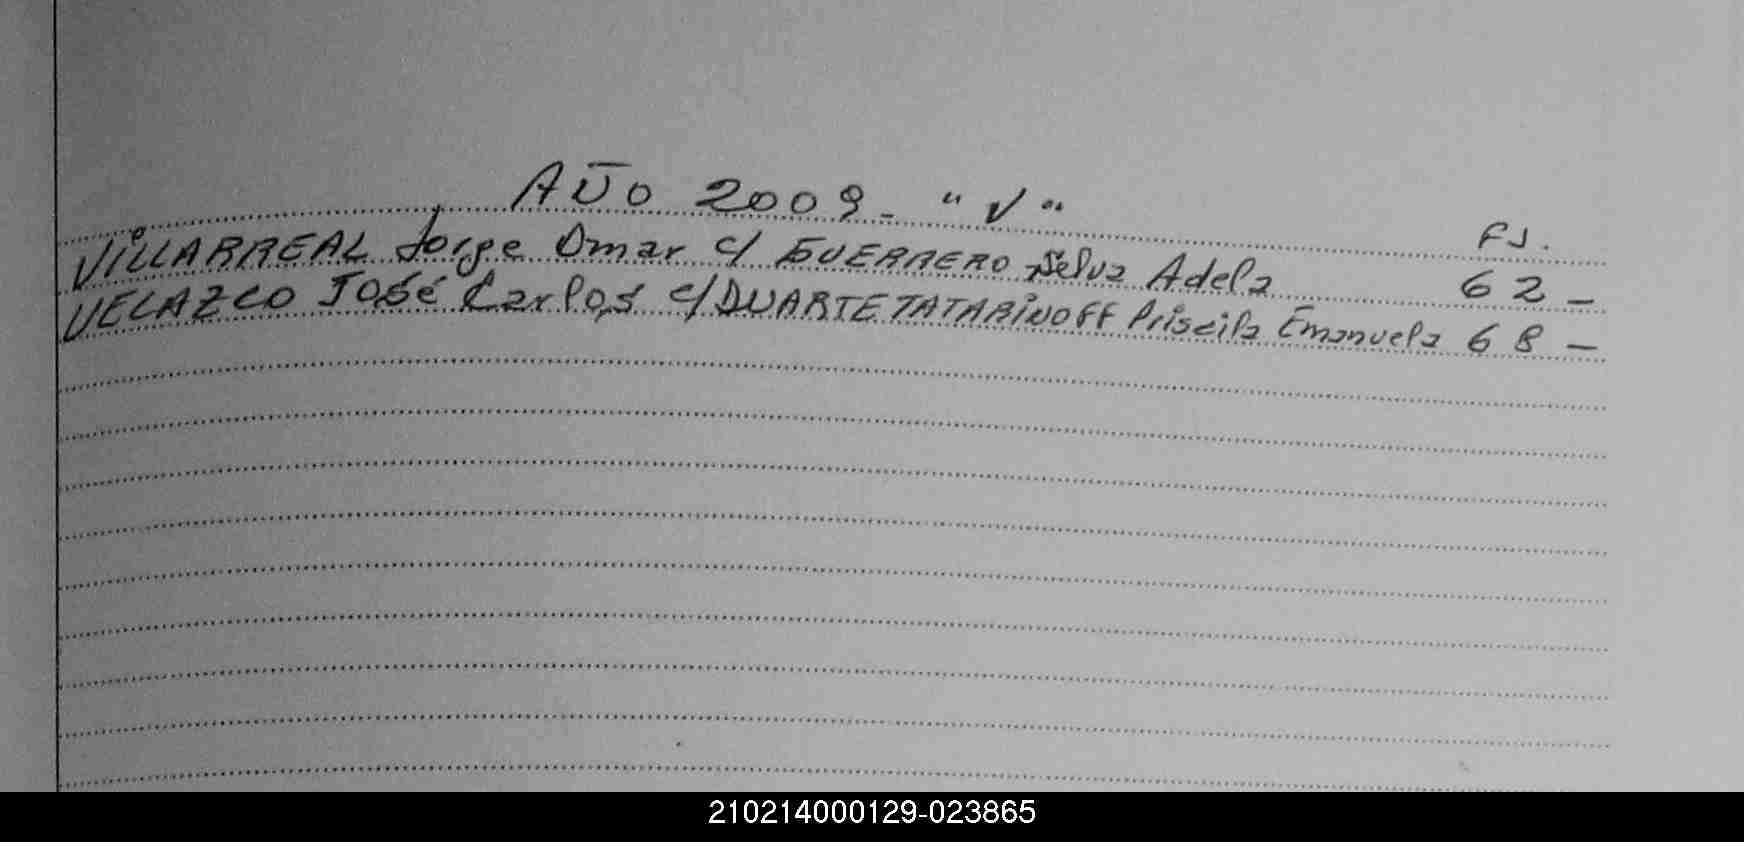 AÑO 2009- "V"
FJ.
VILLARREAL Jorge Omar c/ GUERRERO Selva Adela 62 -
VELAZCO José Carlos c/ DUARTE TATARINOFF Priscila Emanuela 68 -
210214000129-023865